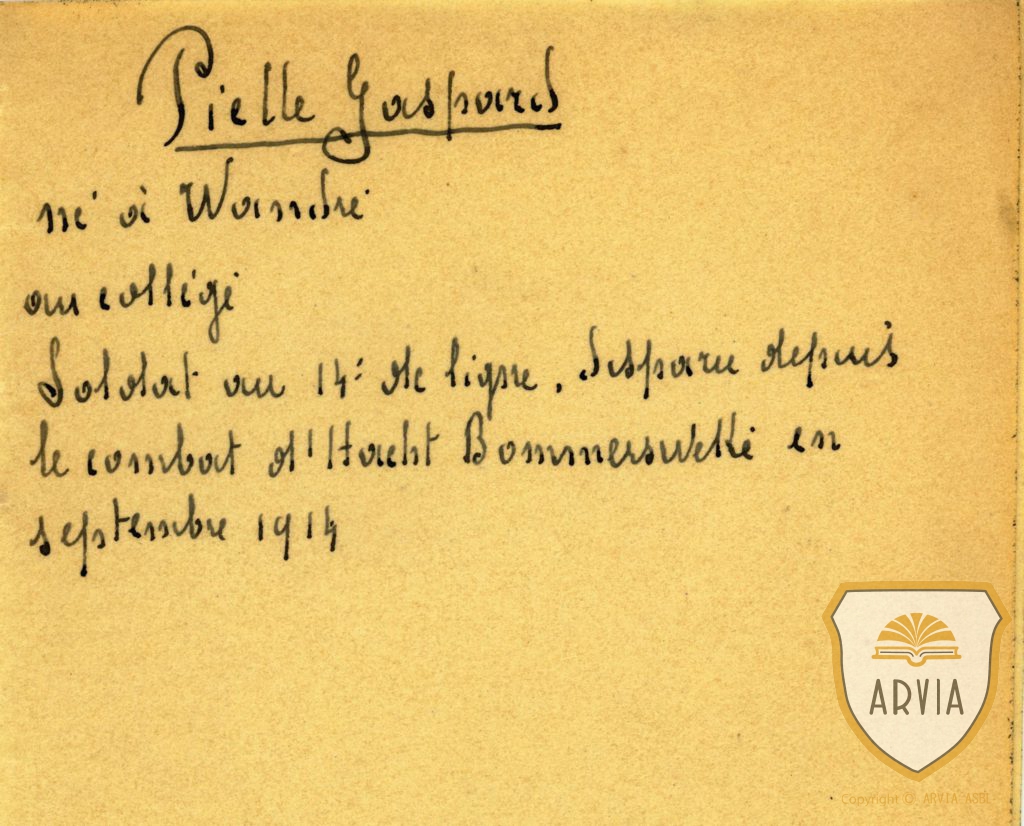 Pielle Gaspard
né à Wandre
au collège
Soldat au 14e de ligne. Disparu depuis
le combat d'Hacht Bommerswelke en
septembre 1914
ARVIA
Copyright © ARVIA ASBL